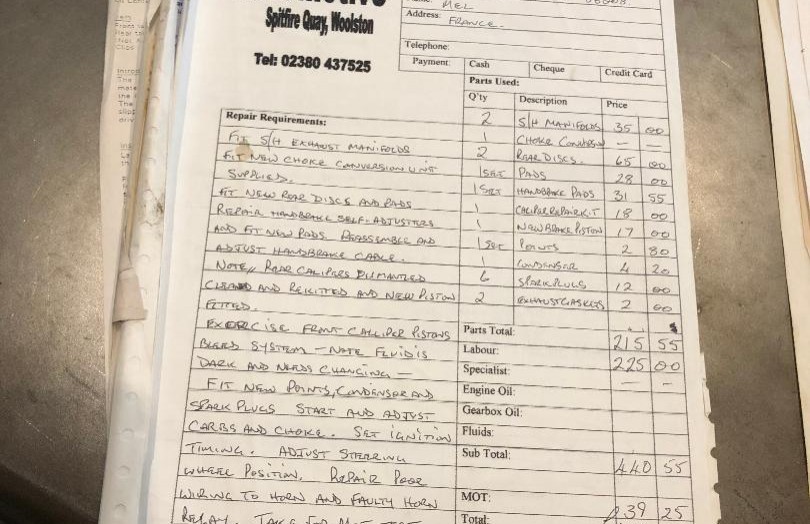 Spitfire Quay, Woolston
Tel: 02380 437525
MEL
Address: FRANCE.
Telephone:
Payment: Cash Cheque Credit Card
Parts Used:
Q'ty Description Price
2 S/H MANIFOLDS 35 00
1 CHOKE CONVERSION — —
2 REAR DISCS. 65 00
1 SET PADS 28 00
1 SET HANDBRAKE PADS 31 55
1 CALIPER REPAIR KIT 18 00
1 NEW BRAKE PISTON 17 00
1 SET POINTS 2 80
1 CONDENSOR 4 20
6 SPARK PLUGS 12 00
2 EXHAUST GASKETS 2 00
Parts Total: 215 55
Labour: 225 00
Specialist: — —
Engine Oil:
Gearbox Oil:
Fluids:
Sub Total: 440 55
MOT:
Total: 39 25
Repair Requirements:
FIT S/H EXHAUST MANIFOLDS
FIT NEW CHOKE CONVERSION UNIT
SUPPLIED.
FIT NEW REAR DISCS AND PADS
REPAIR HANDBRAKE SELF-ADJUSTERS
AND FIT NEW PADS. REASSEMBLE AND
ADJUST HANDBRAKE CABLE.
NOTE// REAR CALIPERS DISMANTLED
CLEANED AND REKITTED AND NEW PISTON
FITTED.
EXERCISE FRONT CALLIPER PISTONS
BLEED SYSTEM - NOTE FLUID IS
DARK AND NEEDS CHANGING -
FIT NEW POINTS, CONDENSOR AND
SPARK PLUGS START AND ADJUST
CARBS AND CHOKE. SET IGNITION
TIMING. ADJUST STEERING
WHEEL POSITION. REPAIR POOR
WIRING TO HORN AND FAULTY HORN
RELAY. TAKE FOR MOT TEST